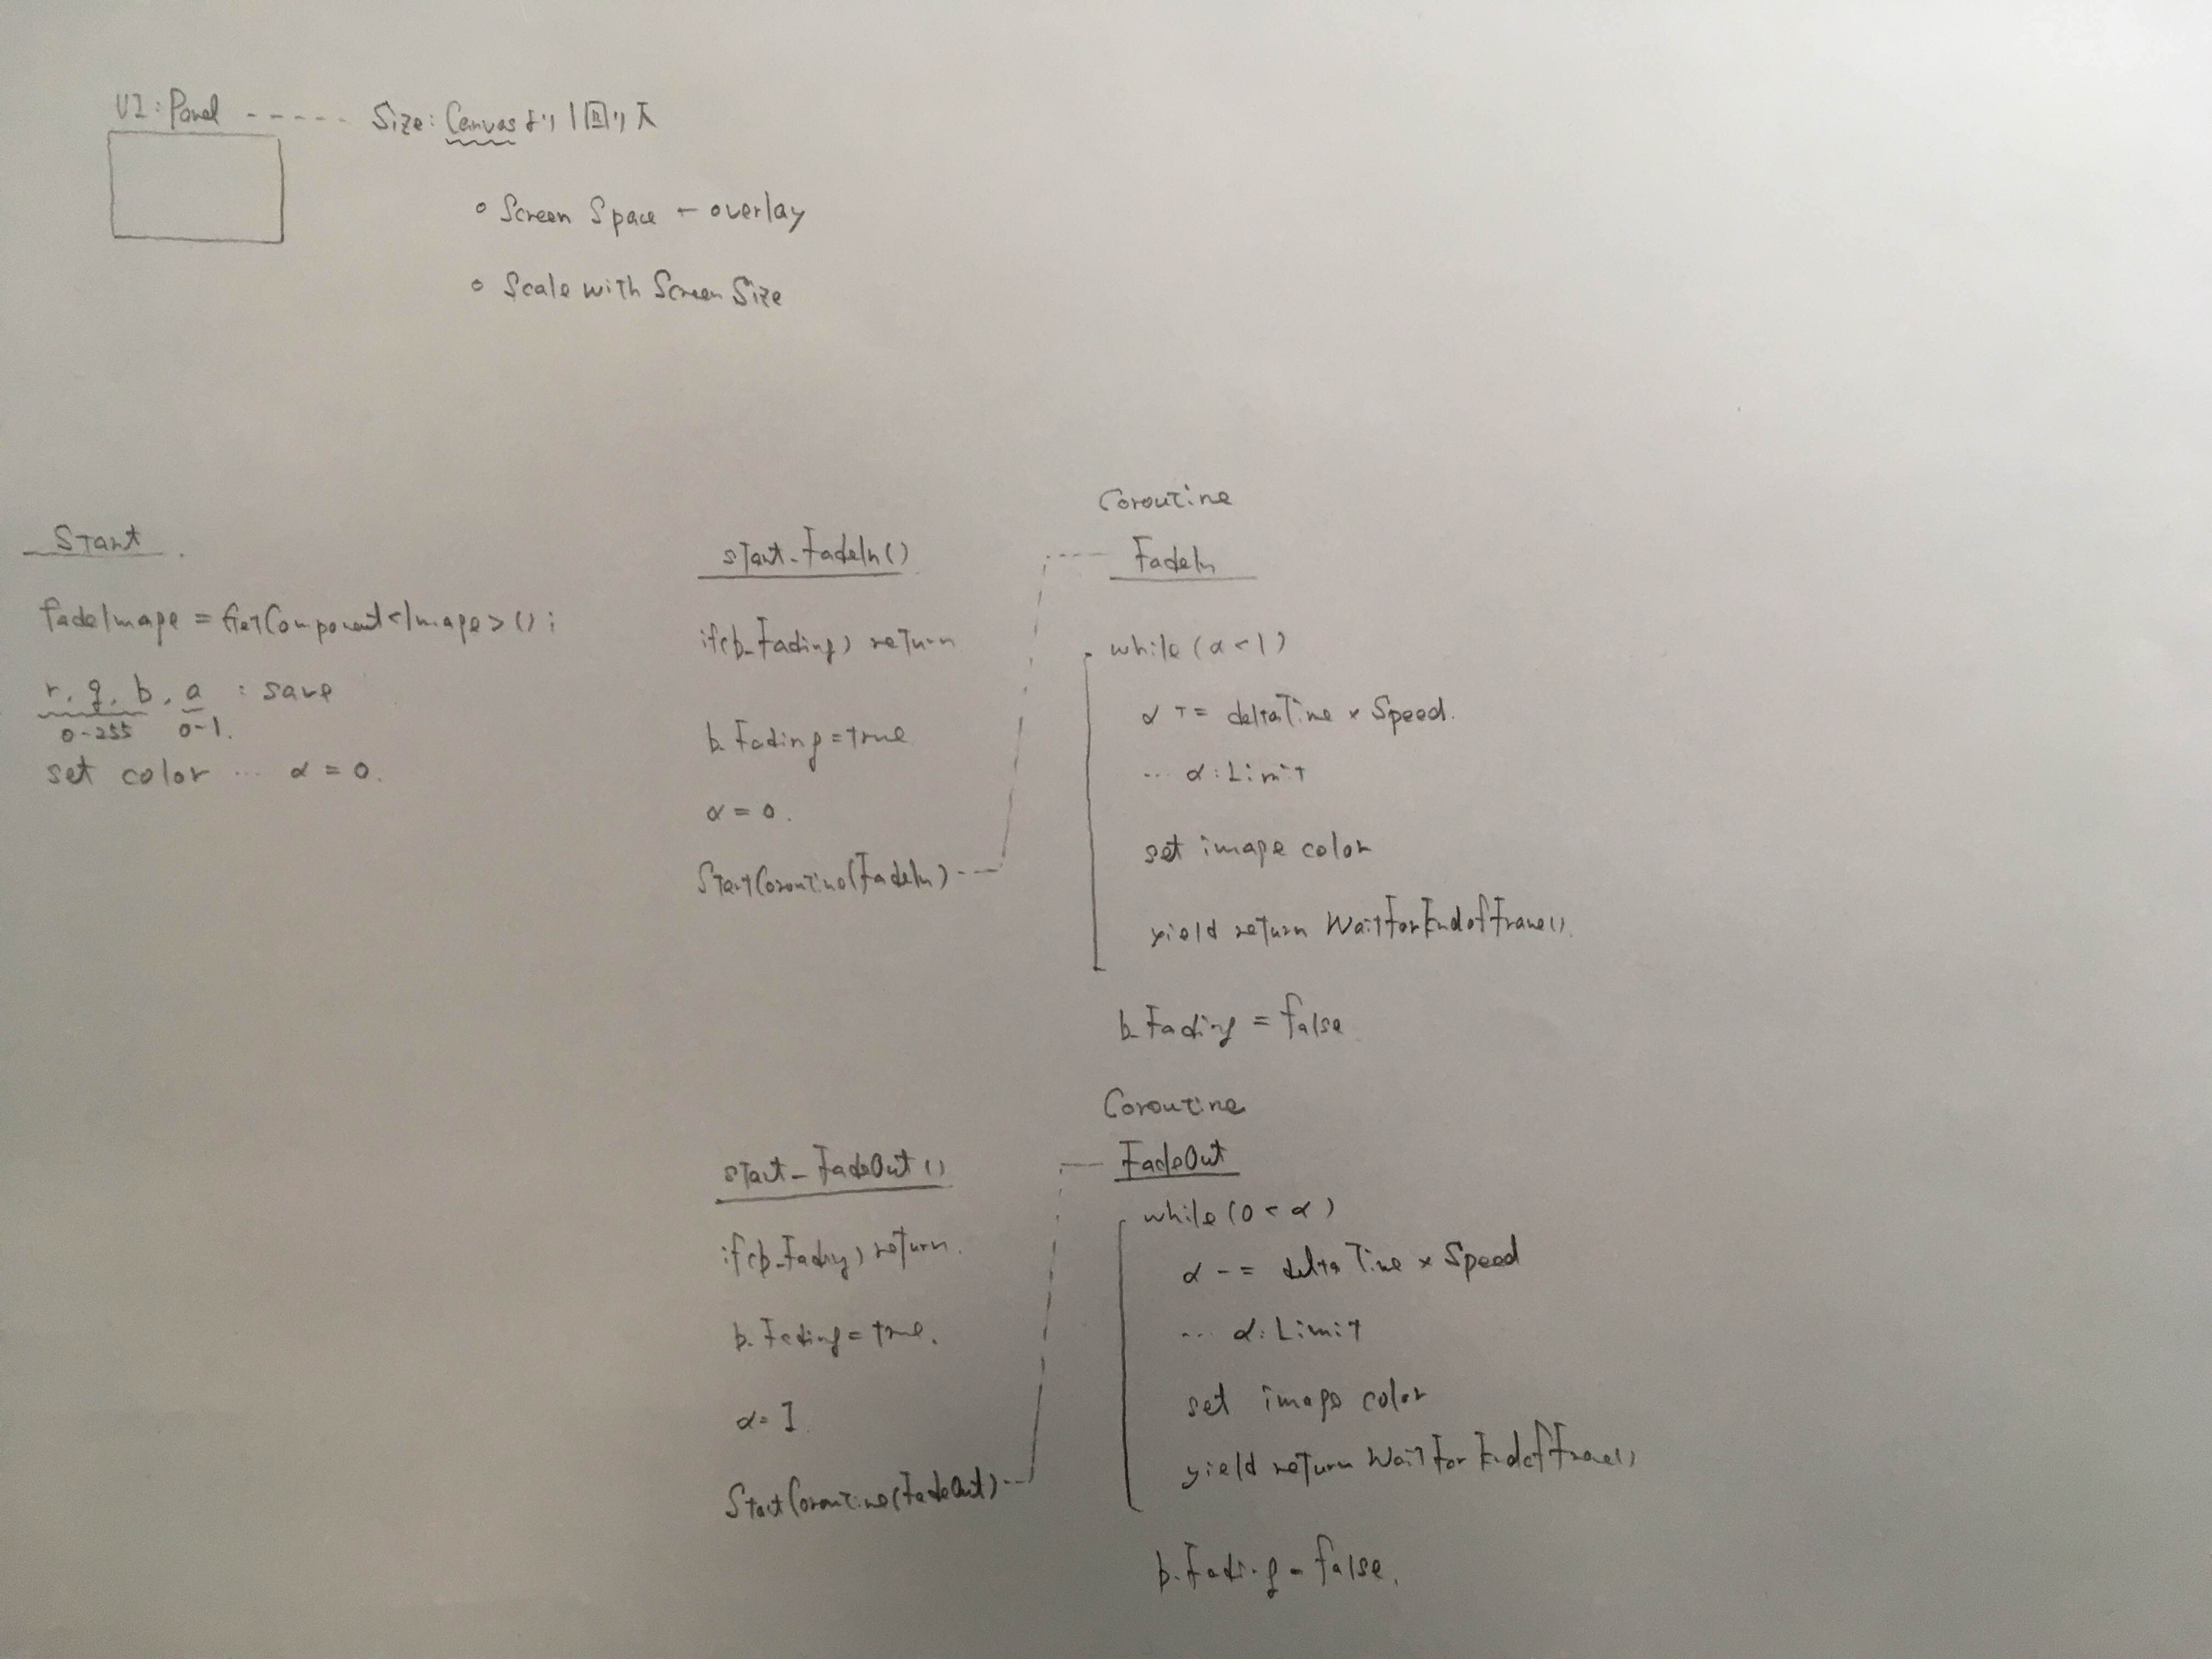 UI : Panel ----- Size : Canvasより1回り大
○ Screen Space - overlay
○ Scale with Screen Size
Start
fadeImage = GetComponent<Image>();
r, g, b, a : save
0-255 0-1.
set color ... α = 0.
start_FadeIn()
if(b_Fading) return
b_Fading = true
α = 0.
StartCoroutine(FadeIn)
Coroutine
FadeIn
while (α < 1)
α += deltaTime × Speed.
... α : Limit
set image color
yield return WaitForEndofFrame().
b_Fading = false
start_FadeOut()
if(b_Fading) return.
b_Fading = true.
α = 1.
StartCoroutine(FadeOut)
Coroutine
FadeOut
while (0 < α)
α -= deltaTime × Speed
... α : Limit
set image color
yield return WaitForEndofFrame()
b_Fading = false.